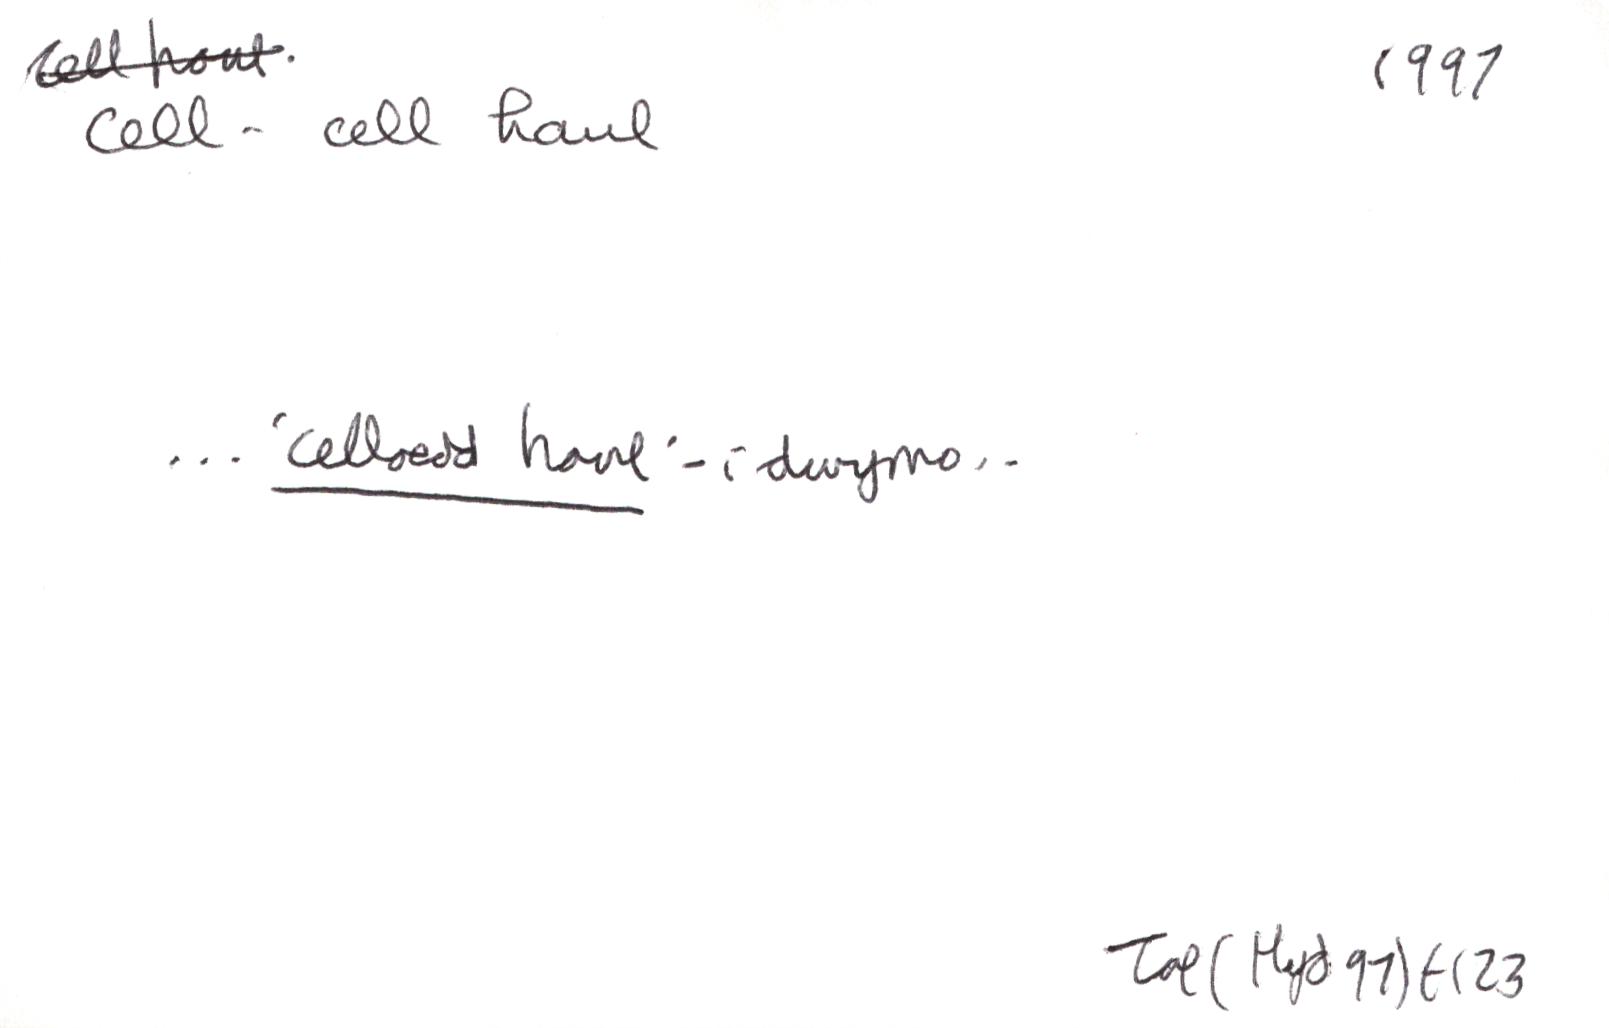 cell haul.
1997
cell - cell haul
... 'celloedd haul' - i dwymo...
Tal (Hyd 97) t 123